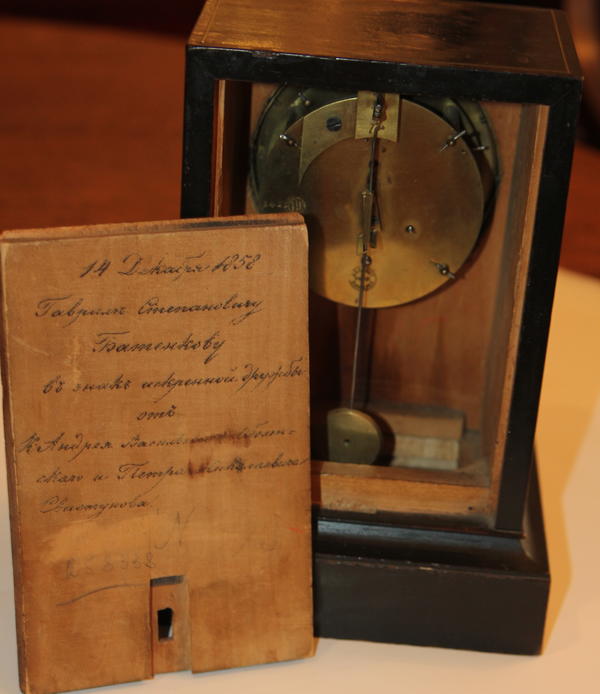 14 Декабря 1858
Гаврилѣ Степановичу
Батенкову
въ знакъ искренной дружбы
отъ
Андрея
скаго и Петра Николаевича
Свистунова.